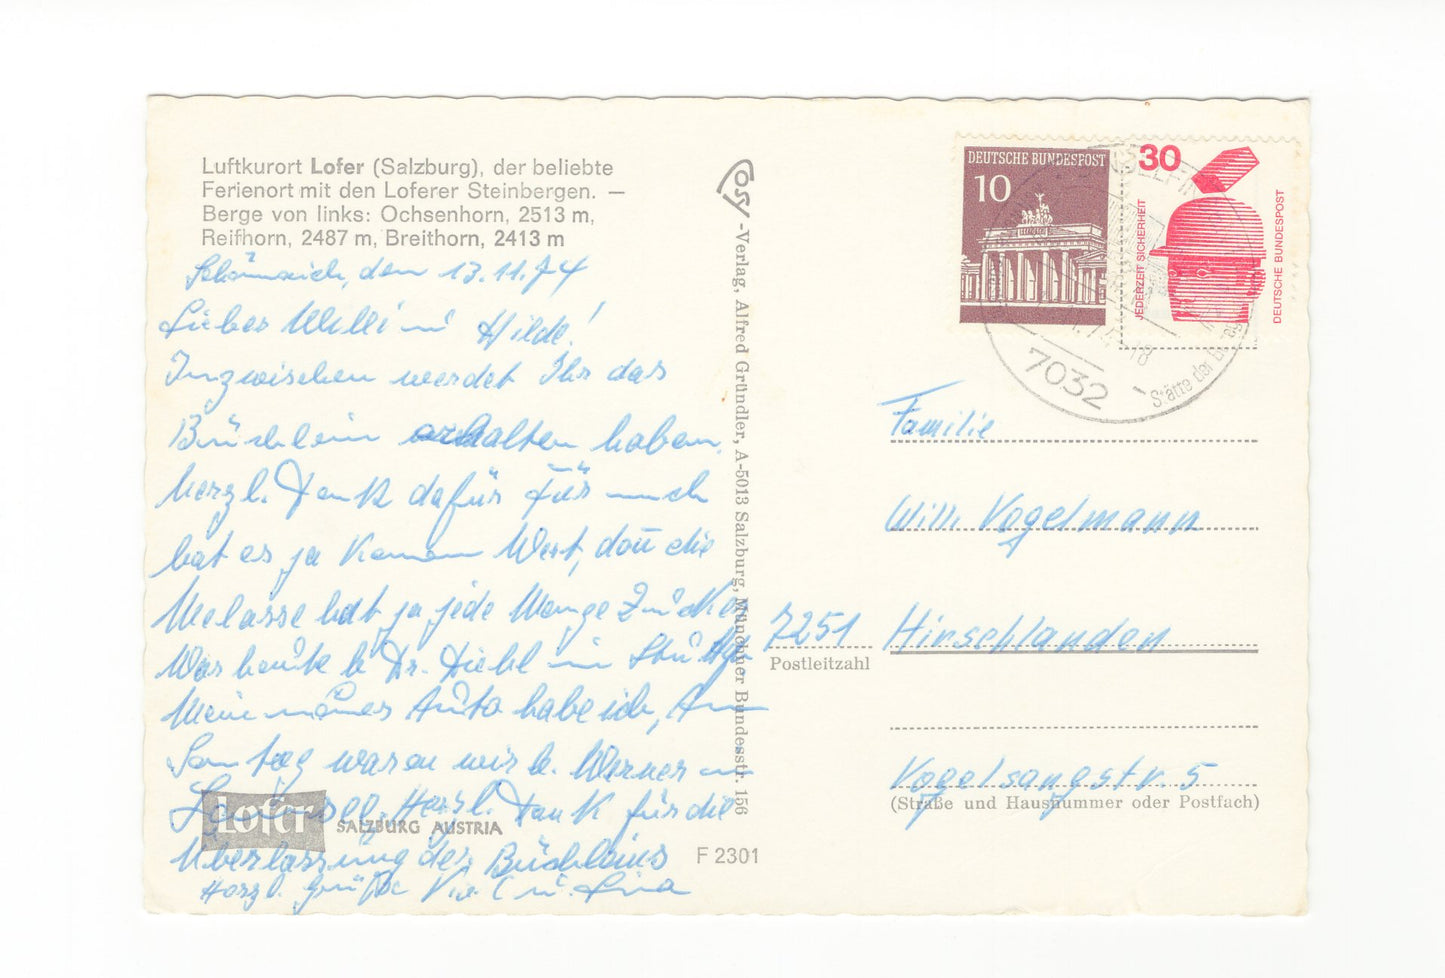 Luftkurort Lofer (Salzburg), der beliebte
Ferienort mit den Loferer Steinbergen. —
Berge von links: Ochsenhorn, 2513 m,
Reifhorn, 2487 m, Breithorn, 2413 m
Schönaich, den 13.11.74
Liebes Willi u Hilde!
Inzwischen werdet Ihr das
Büchlein erhalten haben,
herzl. Dank dafür Für mich
hat es ja keinen Wert, denn die
Melasse hat ja jede Menge Zucker
War heute b Dr. Diehl in
Mein neues Auto habe ich, Am
Sonntag waren wir b. Werner in
Herzl. Dank für die
Überlassung des Büchleins
Herzl. Grüße u.
Lofer
SALZBURG AUSTRIA
F 2301
Cosy-Verlag, Alfred Gründler, A-5013 Salzburg, Münchner Bundesstr. 156
DEUTSCHE BUNDESPOST
10
30
JEDERZEIT SICHERHEIT
DEUTSCHE BUNDESPOST
7032
Stätte der
Familie
Willi Vogelmann
7251 Hirschlanden
Postleitzahl
Vogelsangstr. 5
(Straße und Hausnummer oder Postfach)